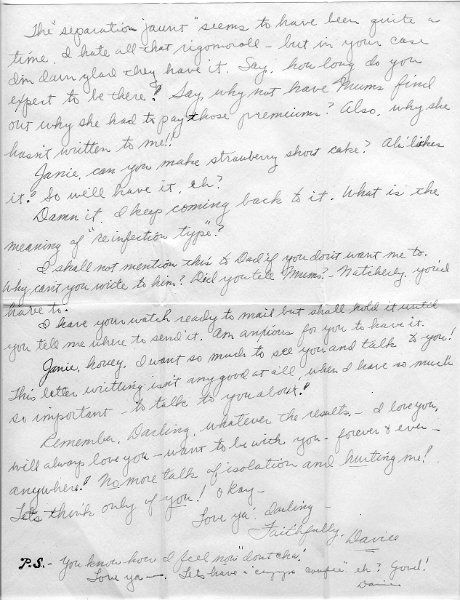 The "separation jaunt" seems to have been quite a
time. I hate all that rigomorole - but in your case
I'm darn glad they have it. Say, how long do you
expect to be there? Say, why not have Mums find
out why she had to pay those premiums? Also, why she
hasn't written to me!
Janie, can you make strawberry short cake? Ah likes
it! So we'll have it, eh?
Damn it, I keep coming back to it. What is the
meaning of "reinfection type"?
I shall not mention this to Dad if you don't want me to.
Why can't you write to him? Did you tell Mums? - Natcherly you'd
have to.
I have your watch ready to mail but shall hold it until
you tell me where to send it. Am anxious for you to have it.
Janie, honey, I want so much to see you and talk to you!
This letter writting isn't any good at all when I have so much
so important - to talk to you about!
Remember, Darling, whatever the results - I love you,
will always love you - want to be with you - forever & ever -
anywhere! No more talk of isolation and hurting me!
Let's think only of you! Okay -
Love ya' Darling -
Faithfully, Davies
P.S. - You know how I feel now "dontcha!
Love ya - Let's have a eh? Good!